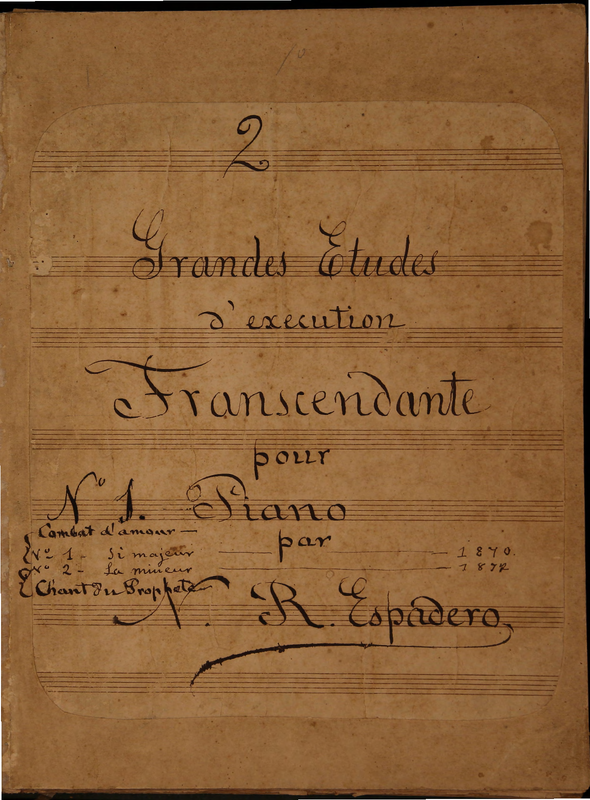 2
Grandes Etudes
d'execution
Transcendante
pour
Nº 1. Piano
Combat d'amour —
par
Nº 1 - Si majeur — 1870.
Nº 2 - La mineur — 1872
Chant du Prophete
N. R. Espadero